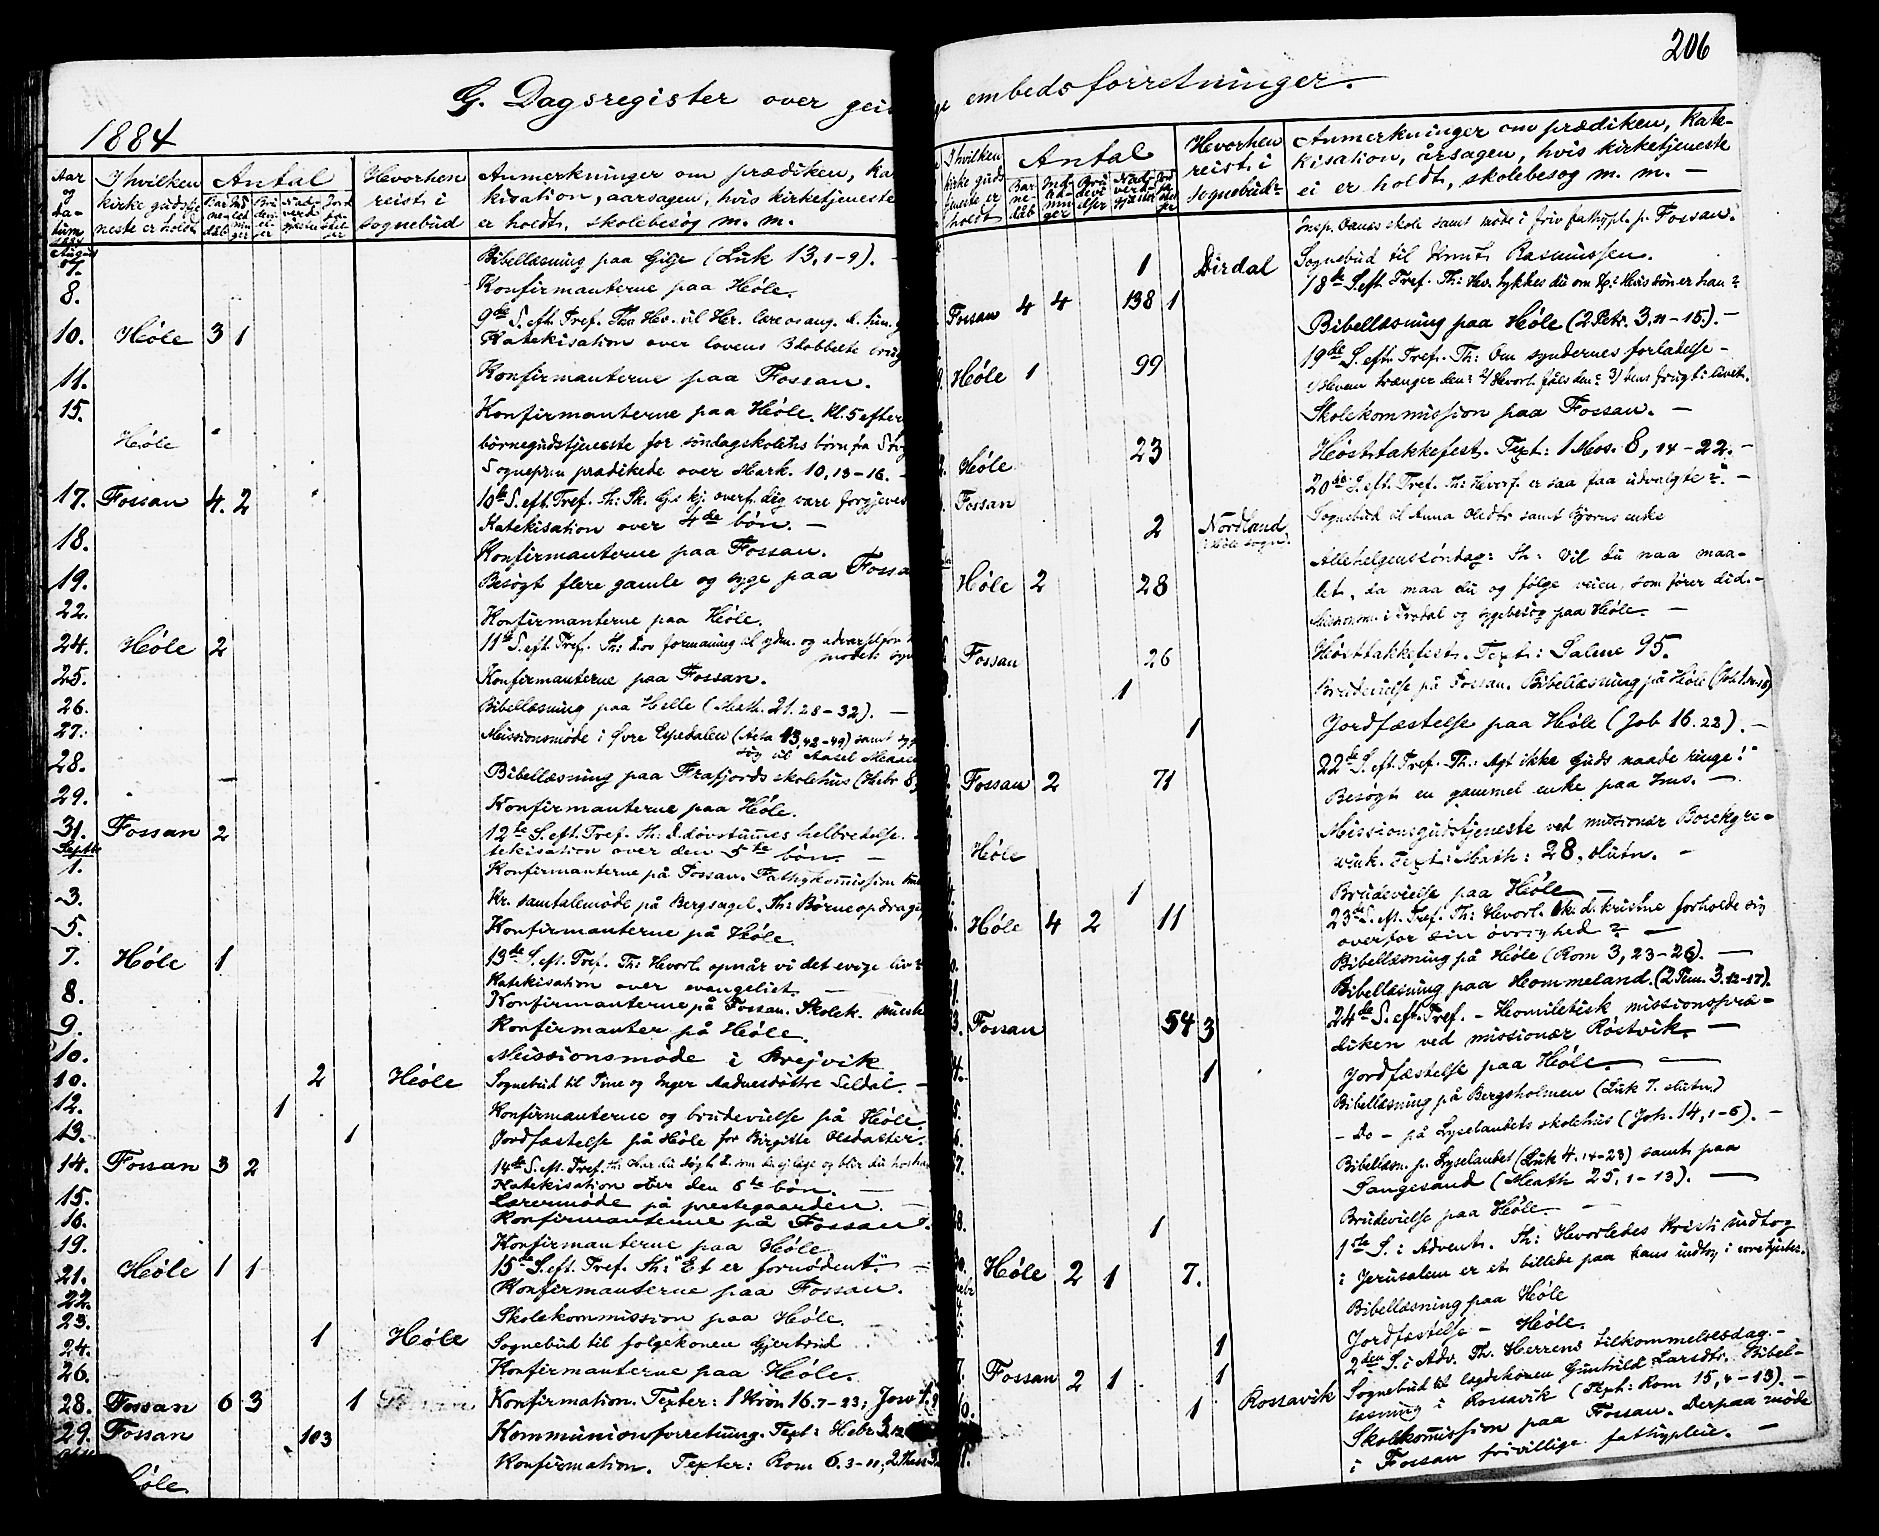 206
G. Dagsregister over gei
ge embedsforretninger.
1884
Aar og datum 1884
I hvilken kirke gudstjeneste er holdt
Antal
Hvorhen reist i sognebud
Anmerkninger om prædiken, ka-
kisation, aarsagen, hvis kirketjeneste
er holdt, skolebesøg m. m.
August
7. Bibellæsning paa Gilje (Luk 13, 1-9).
8. Konfirmanterne paa Høle.
10. Høle 3 1 9de S. eft. Tref.
Katekisation over lovens
11. Konfirmanterne paa Fossan.
15. Konfirmanterne paa Høle. Kl. 5 efter
Høle børnegudstjeneste for søndagskolens børn fra
Sogneprn prædikede over Mark. 10, 13-16.
17. Fossan 4. 2 10de S. eft. Tref. Th:
Katekisation over 4de bøn. -
18. Konfirmanterne paa Fossan.
19. Besøgt flere gamle og syge paa Fossa
22. Konfirmanterne paa Høle.
24. Høle 2 11te S. eft. Tref. Th:
25. Konfirmanterne paa Fossan.
26. Bibellæsning paa Helle (Math. 21. 28-32). -
27. Missionsmøde i Øvre Espedalen (Acta 13, 42-49) samt
28. Bibellæsning paa Frafjords skolehus (Hebr 8,
29. Konfirmanterne paa Høle.
31. Fossan 2 12te S. eft. Tref. Th: d. døvstummes helbredelse.
tekisation over den 5te bøn. -
Septbr
1. Konfirmanterne på Fossan. Fattigkommission
3. Kr. samtalemøde på Bergsagel. Th: Børneopdrage
5. Konfirmanterne på Høle.
7. Høle 1 13de S. eft. Tref. Th: Hvorl. opnår vi det evige liv?
Katekisation over evangeliet.
8. Konfirmanterne på Fossan. Skolek.
9. Konfirmanter på Høle.
10. Missionsmøde i Brejvik
10. 2 Høle Sognebud til Tine og Inger Aadnesdøttre Seldal. -
12. 1 Konfirmanterne og brudevielse på Høle.
13. 1 Jordfæstelse på Høle for Birgitte Olsdatter.
14. Fossan 3 2 14de S. eft. Tref.
Katekisation over den 6te bøn. -
15. Lærermøde på prestegaarden.
16. Konfirmanterne på Fossan.
19. Konfirmanterne paa Høle.
21. Høle 1 1 15de S. eft. Tref. Th: "Et er fornødent". -
22. Konfirmanterne paa Fossan.
23. Skolekommission paa Høle.
24. 1 Høle Sognebud til folgekonen Gjertrud
26. Konfirmanterne paa Høle.
28. Fossan 6 3 1 Konfirmation. Texter: 1 Krøn 16. 7-23; Josv
29. Fossan 103 Kommunionforretning. Text: Hebr 3,
Høle Konfirmation. Texter: Rom 6. 3-11;
I hvilken kirke gudstjeneste er holdt
Antal
Hvorhen reist i sognebud
Anmerkninger om prædiken, kate-
kisation, årsagen, hvis kirketjeneste
ei er holdt, skolebesøg m. m. -
Insp. skole samt møde i friv fattigpl. p. Fossan.
1 Dirdal Sognebud til Knut Rasmussen.
Fossan 4 4 138 1 18de S. eft. Tref. Th: Hv. tykkes du om Kr: Hvis søn er han?
Bibellæsning paa Høle (2 Petr. 3, 11-15). -
Høle 1 99 19de S. eft. Tref. Th: Om syndernes forladelse -
1) Hvem trænger den? 2) Hvorl. fåes den? 3) dens frugt i livet.
Skolekommission paa Fossan. -
Høle 23 Høsttakkefest. Text: 1 Mos. 8, 14-22. -
Fossan 20de S. eft. Tref. Th: Hvorf. er saa faa udvalgte?. -
2 Nordland Sognebud til Anna samt Bjørns enke
Høle 2 28 Allehelgenssøndag: Th: Vil du naa maa-
let, da maa du og følge veien, som fører did. -
Missionsm. i og sygebesøg paa Høle. -
Fossan 26 Høsttakkefest. Text: Salme 95.
1 Brudevielse på Fossan. Bibellæsning på Høle
1 Jordfæstelse paa Høle (Job 16. 22). -
Fossan 2 71 22de S. eft. Tref. Th: Agt ikke Guds naade ringe!
Besøgt en gammel enke paa Ims. -
Høle Missionsgudstjeneste ved missionær Borchgre-
vink. Text: Math: 28, slutn. -
1 Brudevielse paa Høle
Høle 4 2 11 23de S. eft. Tref. Th: Hvorl. sk. d. kristne forholde sig
overfor sin øvrighed? -
Bibellæsning på Høle (Rom 3, 23-26). -
Bibellæsning paa Hommeland. (2 Tim. 3. 12-17).
Fossan 54 3 24de S. eft. Tref. - Homiletisk missionspræ-
diken ved missionær Röstvik. -
1 Jordfæstelse paa Høle. -
Bibellæsning på Bergsholmen (Luk 7. slutn.)
- Do - på Lyselandets skolehus (Joh. 14, 1-6). -
Bibellæsn. p. Lyselandet (Luk 4. 14-23) samt paa
Sangesand (Math 25, 1-13). -
1 Brudevielse paa Høle. -
Høle 2 1 7. 1ste S. i Advent. Th: Hvorledes Kristi indtog
i Jerusalem er et billede paa hans indtog i vore hjerter.
Bibellæsning paa Høle
1 Jordfæstelse - Høle.
Fossan 2 1 1 2den S. i Adv. Th. Herrens tilkommelsesdag. -
1 Rossavik Sognebud til lægdskonen Gunhild Larsdtr. Bibel-
læsning i Rossavik (Text: Rom 15, 4-13). -
Skolekommission paa Fossan. Derpaa møde
i Fossan frivillige fattigpleie. -